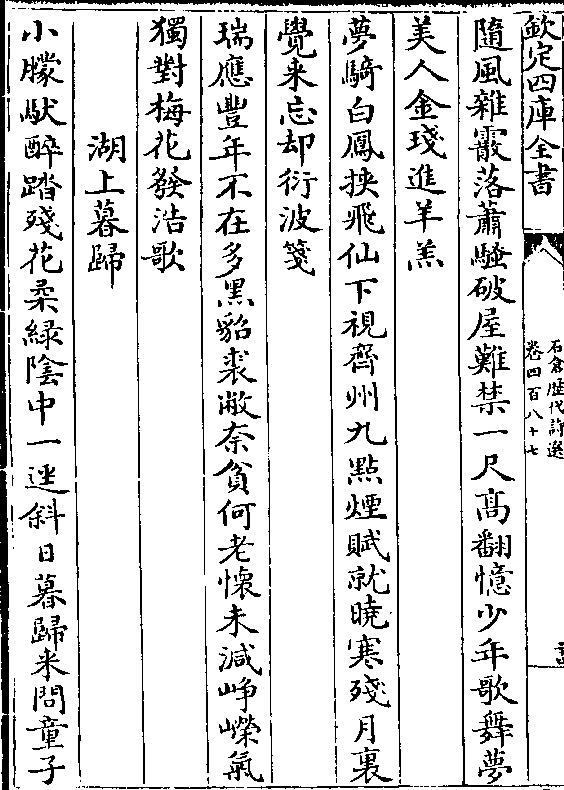 欽定四庫全書
石倉歷代詩選
卷四百八十七
隨風雜霰落蕭騷破屋難禁一尺高翻憶少年歌舞夢
美人金琖進羊羔
夢騎白鳳挾飛仙下視齊州九點煙賦就曉寒殘月裏
覺来忘却衍波箋
瑞應豐年不在多黑貂裘敝奈貧何老懷未減崢嶸氣
獨對梅花發浩歌
湖上暮歸
小艨䭾醉踏殘花柔緑陰中一逕斜日暮歸来問童子